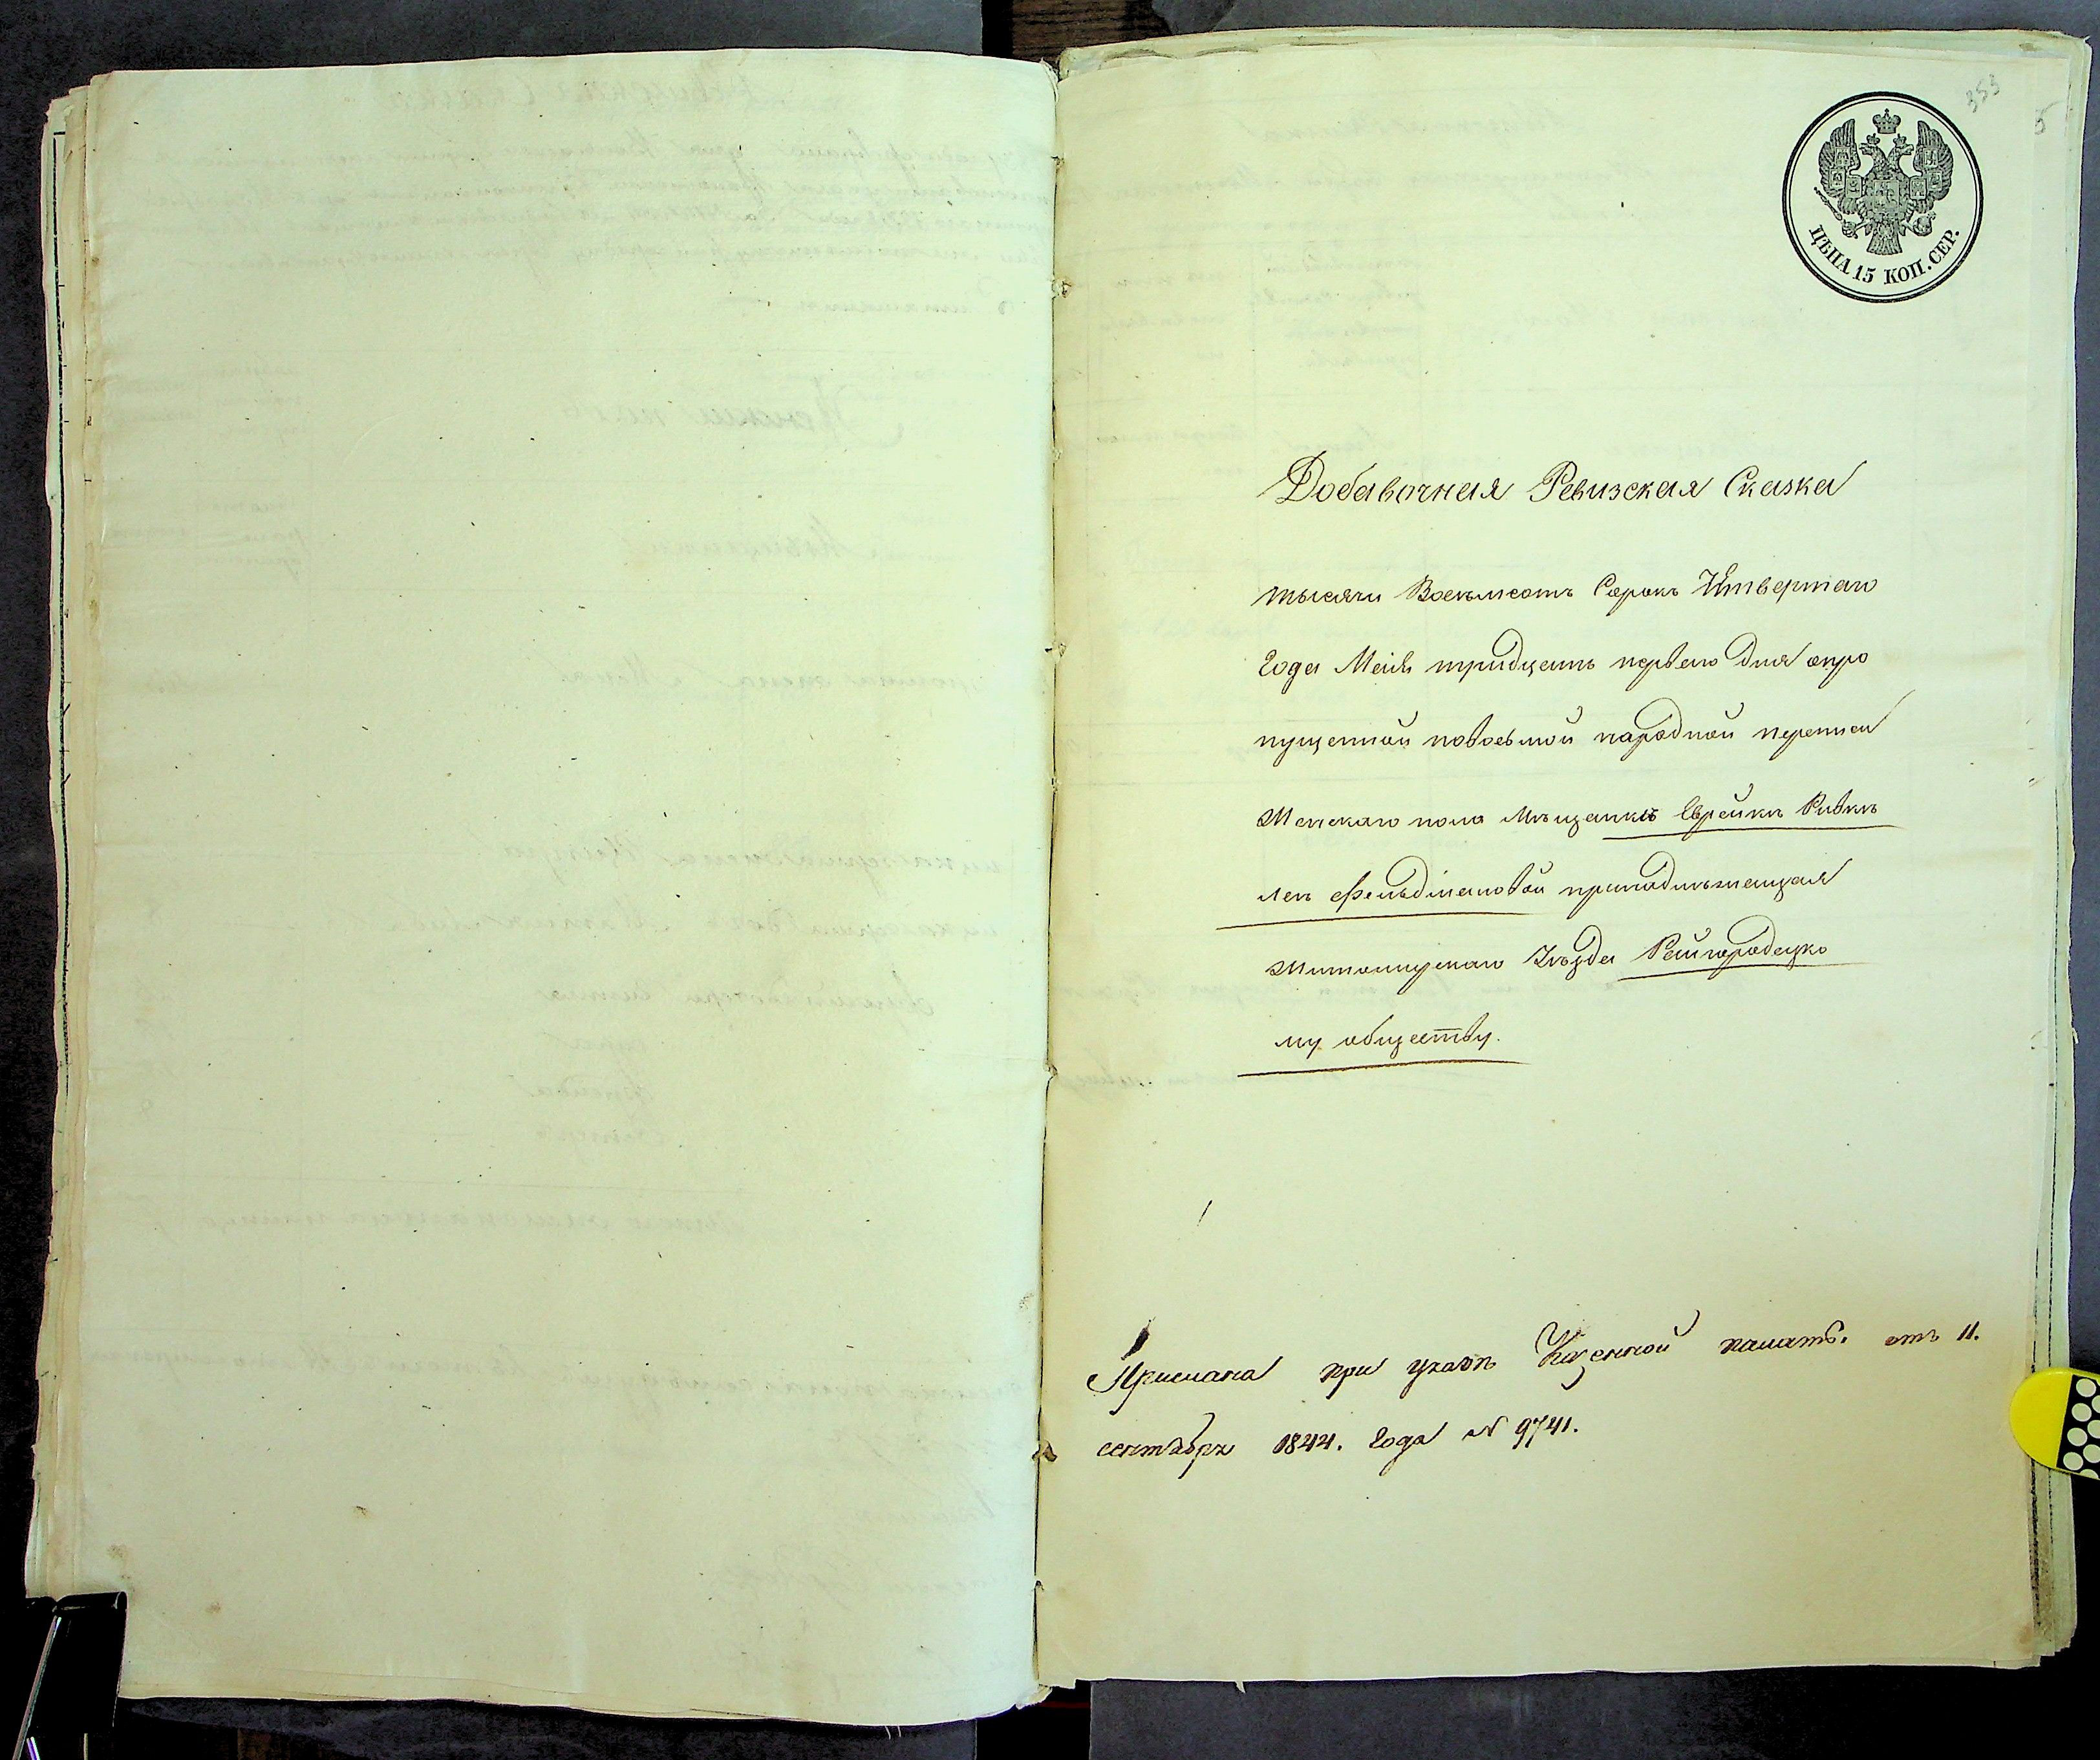 353
5
ЦѢНА 15 КОП. СЕР.
Добавочная Ревизская Сказка
тысячи Восемьсотъ Сорокъ Четвертаго
Года Маія тридцать перваго дня опро
пущенной повосьмой народной переписи
Женскаго пола Мѣщанкѣ Еврейкѣ Ривкѣ
Фельдмановой принадлежащая
Житомирскаго Уѣзда Райгородецко
му обществу.
Прислана при указѣ Казенной палаты отъ 11.
сентября 1844. Года № 9741.